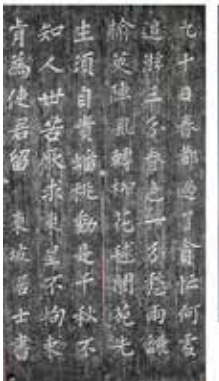 九十日春都過了貪忙何處
追游三分春色一分愁雨翻
榆莢陣風轉柳花毬閬苑先
生須自責蟠桃動是千秋不
知人世苦厭求東皇不拘束
肯為使君留 東坡居士書